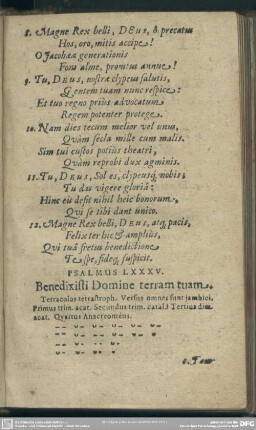 8. Magne Rex belli, DEus, ô precatus
Hos, oro, mitis accipe!
O Jacobææ generationis
Fons alme, prontus annue!
9. Tu, DEus, nostræ clypeus salutis,
Q gentem tuam nunc respice:
Et tuo regno priùs advocatum
Regem potenter protege.
10. Nam dies tecum melior vel unus,
Quàm secla mille cum malis.
Sim tui custos potiùs theatri,
Quàm reprobi dux agminis.
11. Tu, DEus, Sol es, clypeusq́ nobis;
Tu das vigere gloriâ:
Hinc eis desit nihil heic bonorum,
Qui se tibi dant unico.
12. Magne Rex belli, DEus, atq; pacis,
Felix ter hic & ampliùs,
Qui tuâ fretus benedictione
Te spe, fideq; suspicit.
PSALMUS LXXXV.
Benedixisti Domine terram tuam.
Tetracolos tetrastroph. Versus omnes sunt jambici,
Primus trim. acat. Secundus trim. catal. Tertius dim.
acat. Qvartus Anacreonteus.